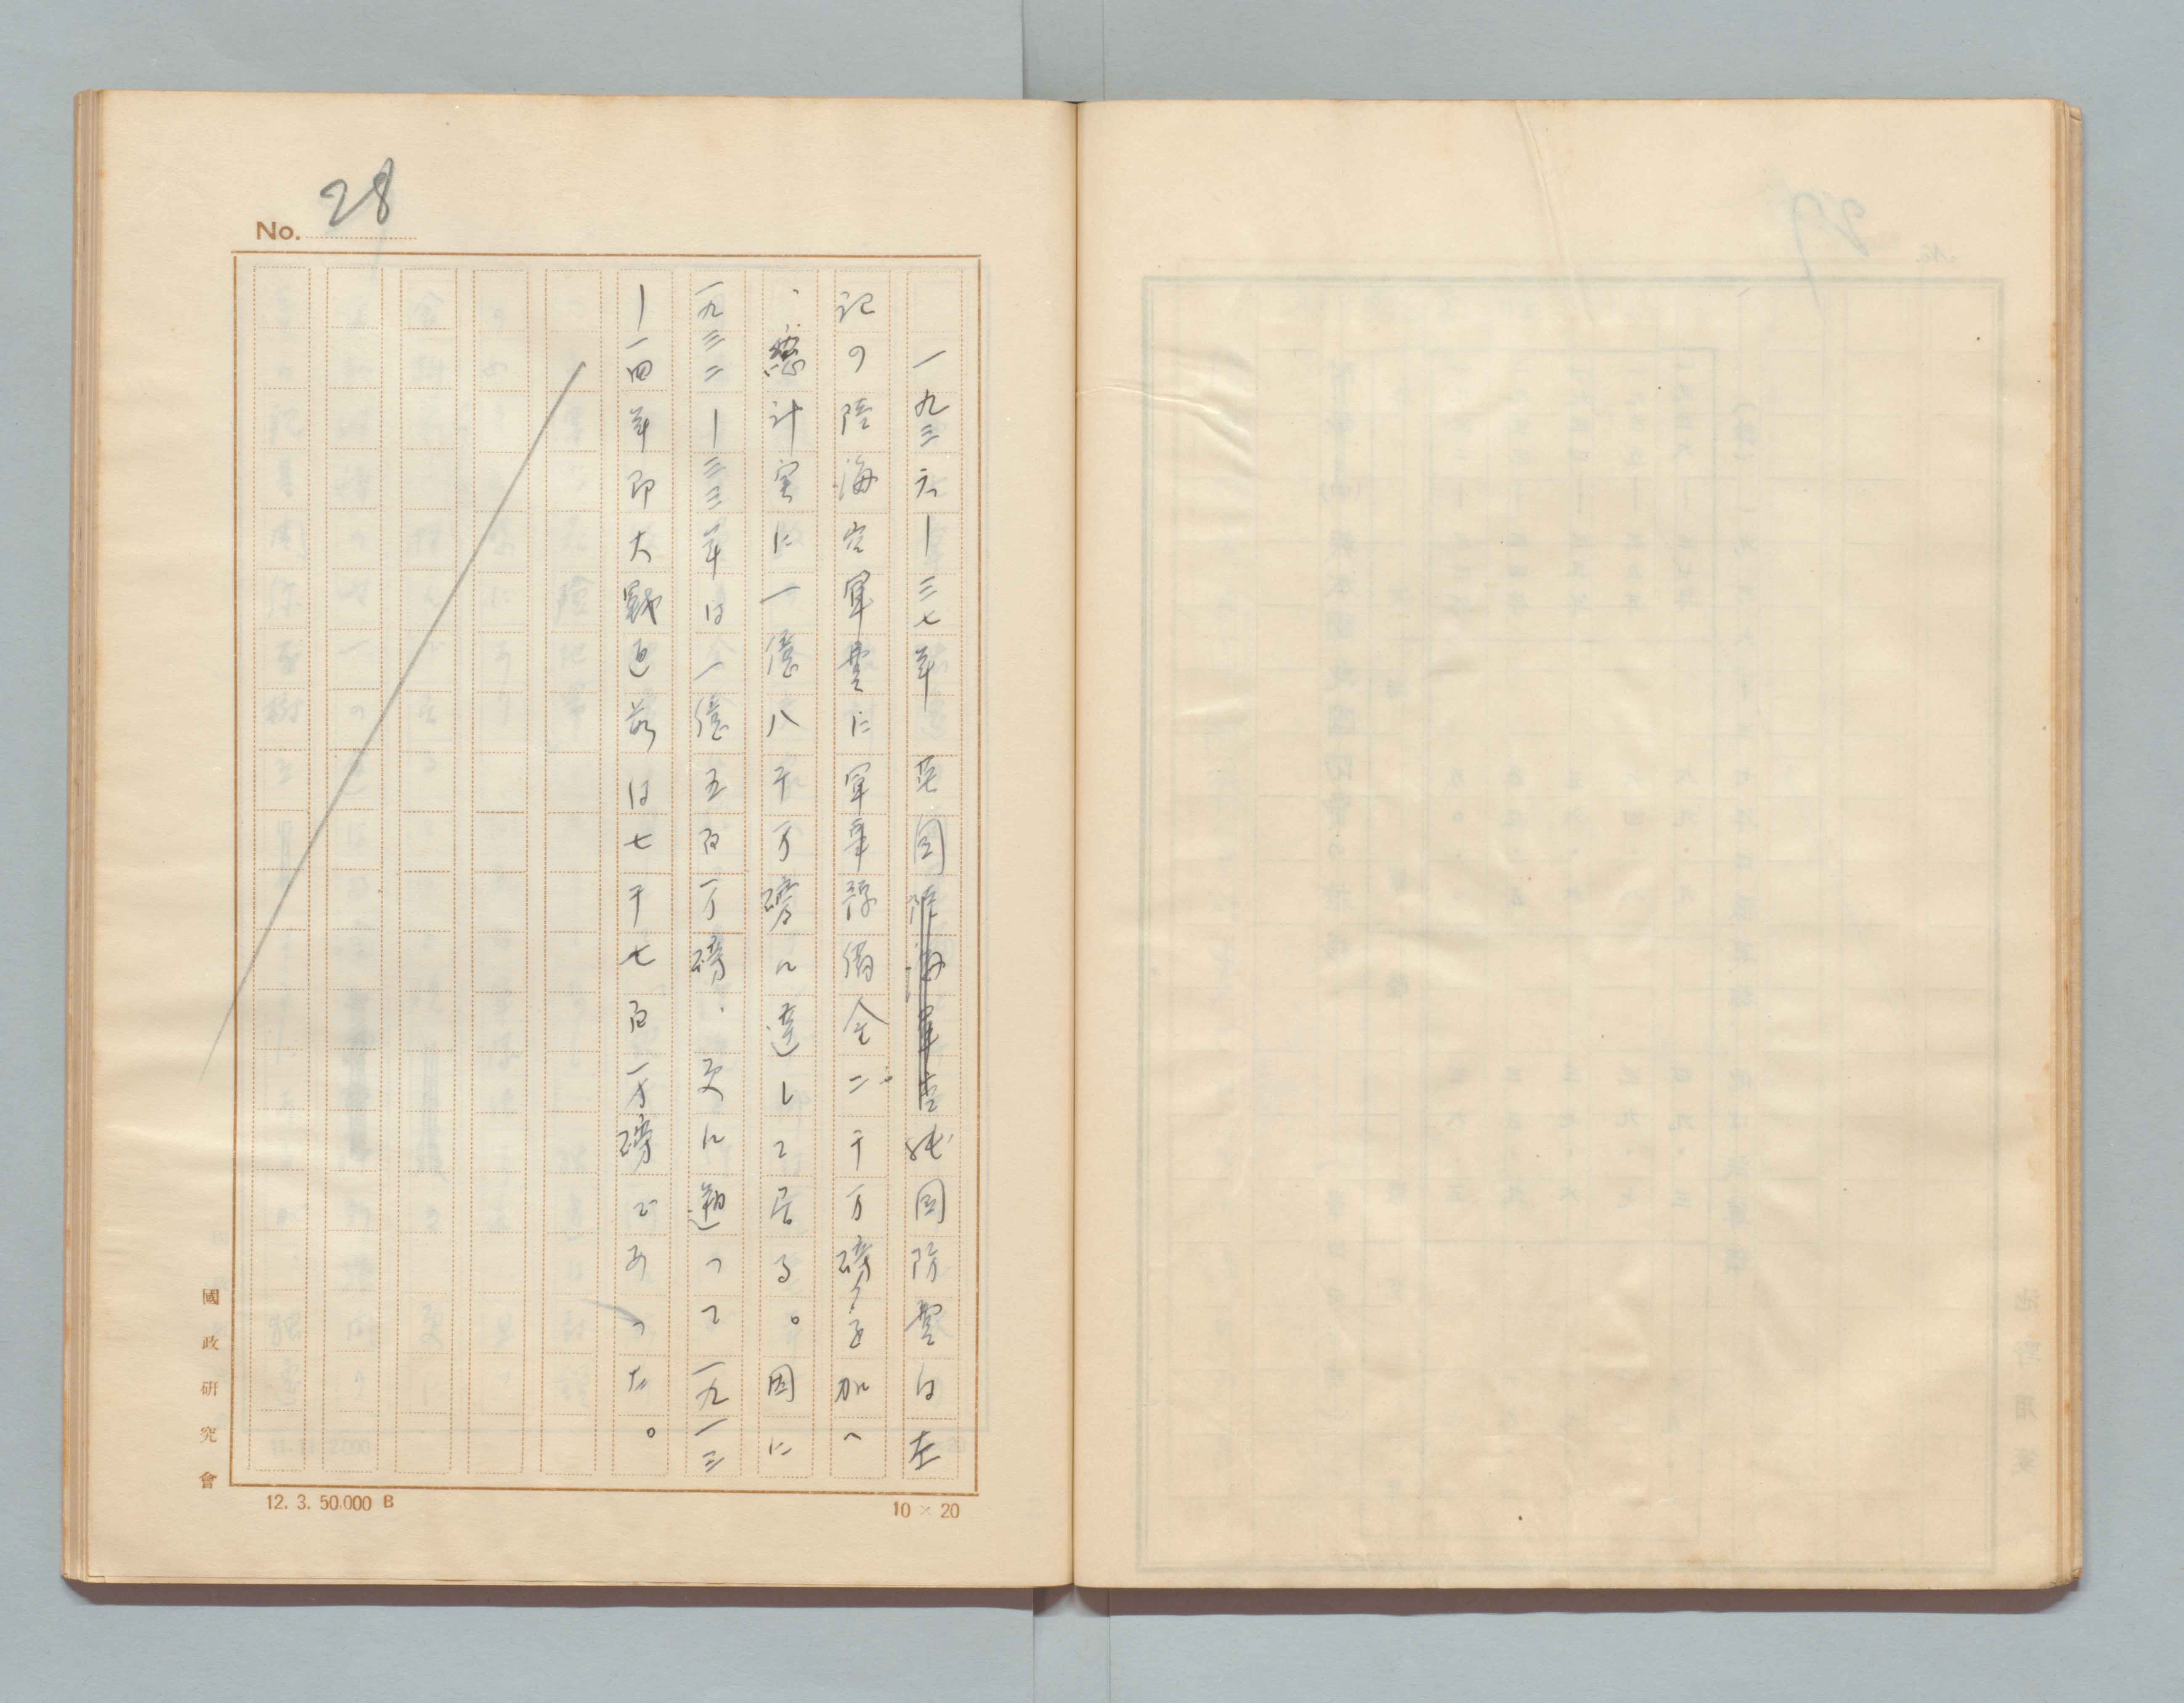 No. 28
一九三六―三七年英国陸海軍費総国防費は左
記の陸海空軍費に軍事予備金二千万磅を加へ
、総計実に一億八千万磅に達して居る。因に
一九三二―三三年は一億五百万磅、更に遡つて一九一三
―一四年即大戦直前は七千七百万磅であつた。
國政研究會
12. 3. 50.000 B
10 × 20